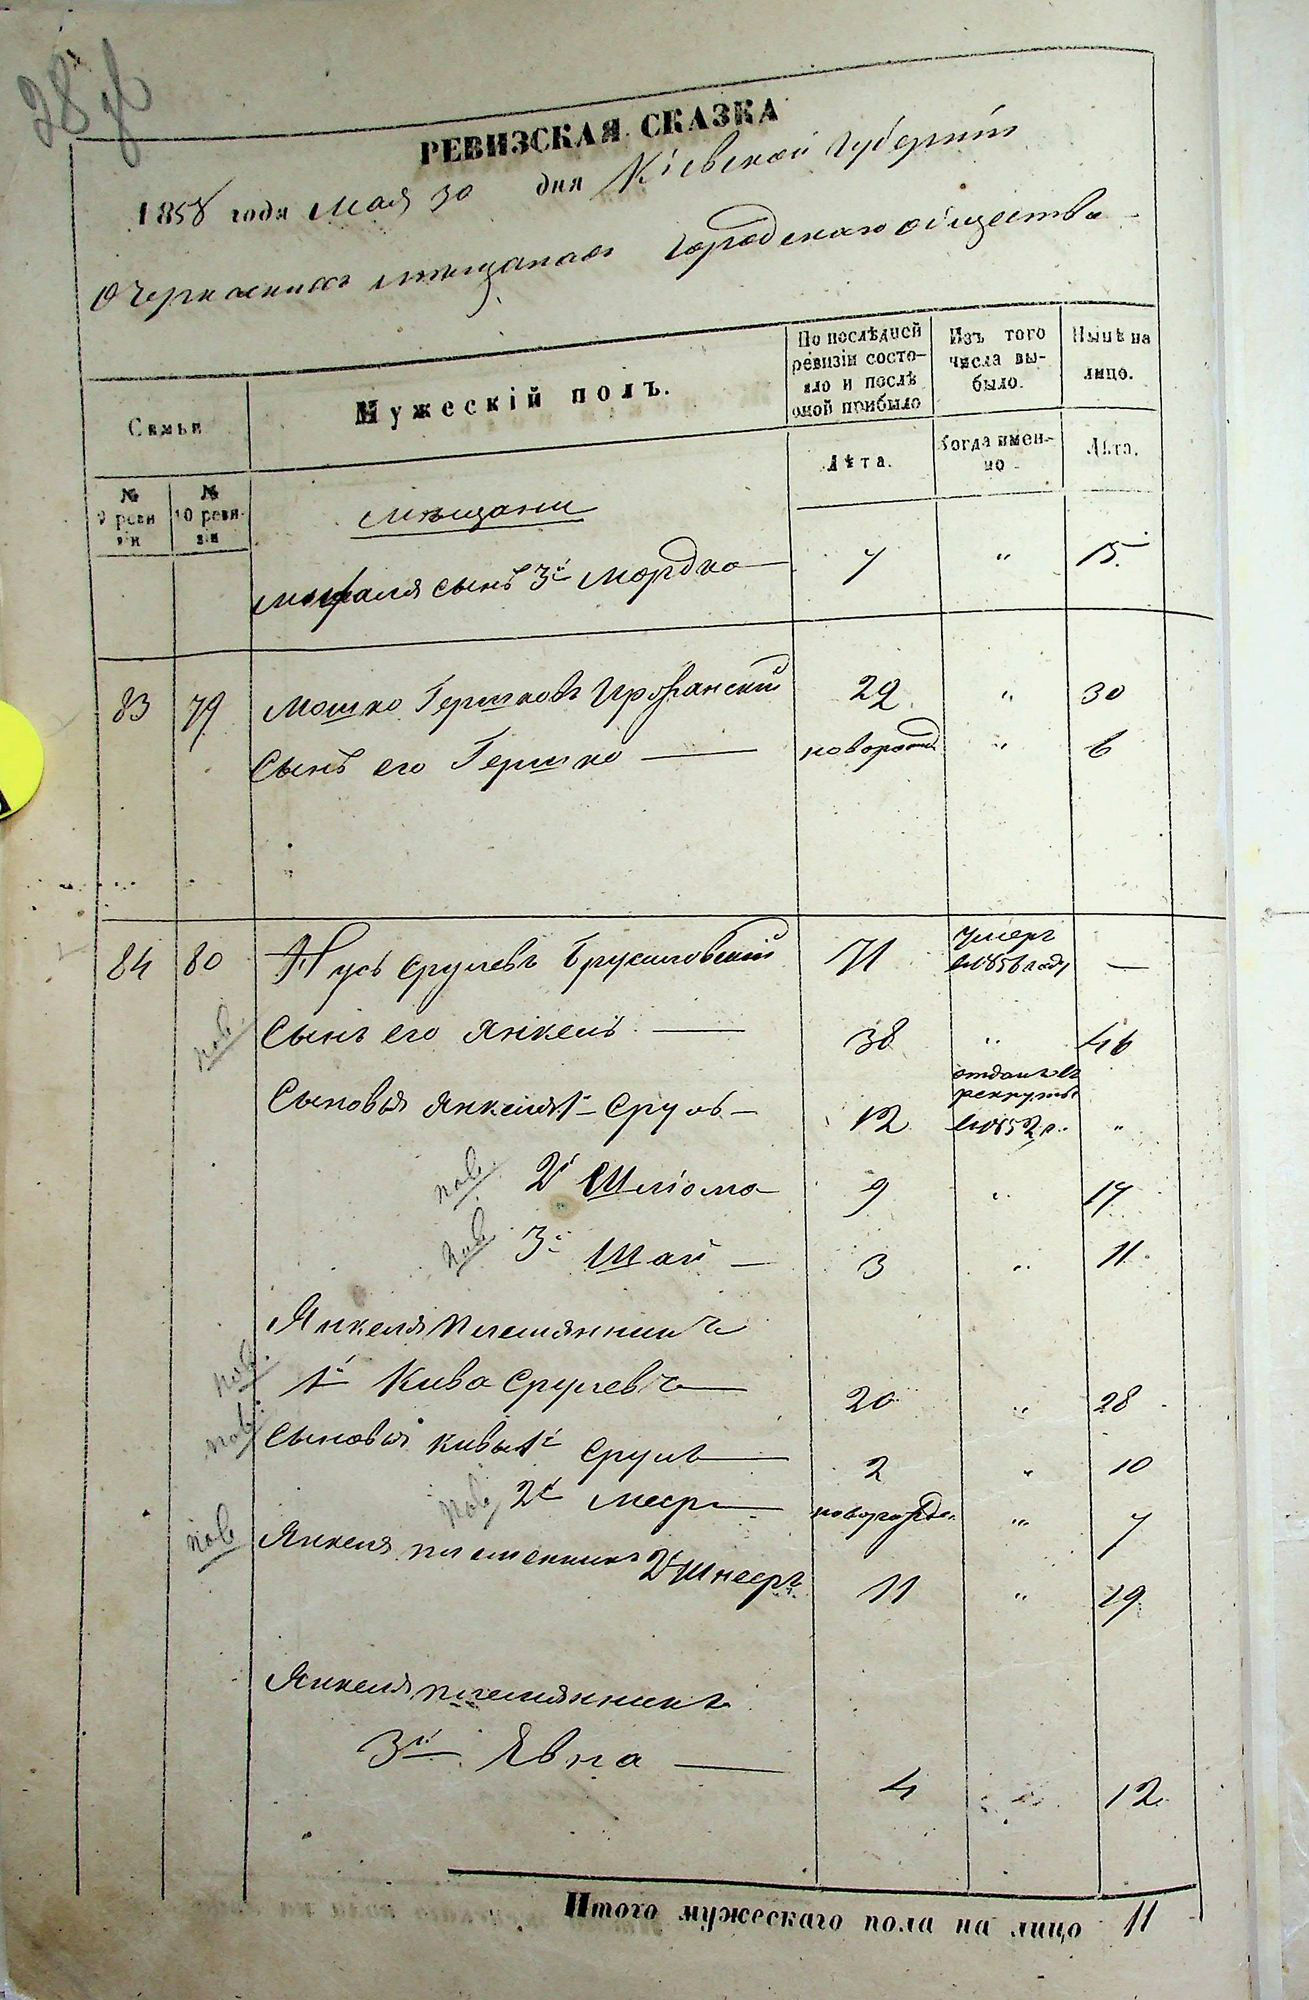 РЕВИЗСКАЯ СКАЗКА
1858 года мая 30 дня Кіевской Губерніи
О Черкаскихъ мещанахъ Городскаго общества
Семьи
Мужескій полъ.
По послѣдней ревизіи состояло и послѣ оной прибыло
Изъ того числа выбыло.
Нынѣ на лицо.
Лѣта.
Когда именно
Лѣта.
№ 9 ревизіи
№ 10 ревизіи
мѣщани
сынъ 3й Мордко 7 " 15.
83 79 Мошко Гершковъ 29 " 30
Сынъ его Гершко новорожд " 6
84 80 Нусь Срулевъ Брусиловскій 71 умеръ в 1856 году —
пов. Сынъ его Янкель 38 " 46
Сыновья Янкеля 1й Сруль 12 отданъ въ рекруты в 1852 г. "
пов. 2й Шліома 9 " 17
пов 3й Шая 3 " 11
Янкеля племянники
пов. 1й Кива Срулевъ 20 " 28
пов. Сыновья Кивы 1й Сруль 2 " 10
пов 2й Меер новорожде. " 7
пов Янкеля племенникъ 2й Шнееръ 11 " 19
Янкеля племянникъ
3й Евна 4 " 12
Итого мужескаго пола на лицо 11